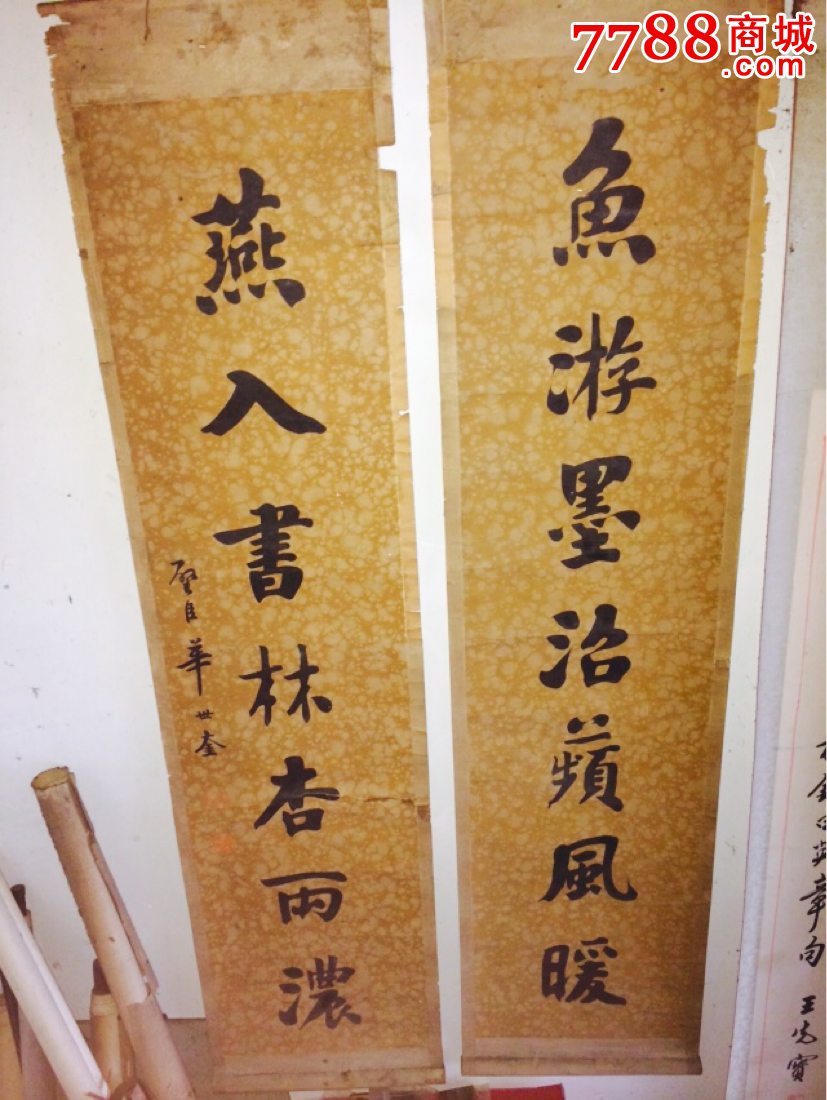 7788商城
.com
魚游墨沼蘋風暖
燕入書林杏雨濃
璧臣華世奎
章句